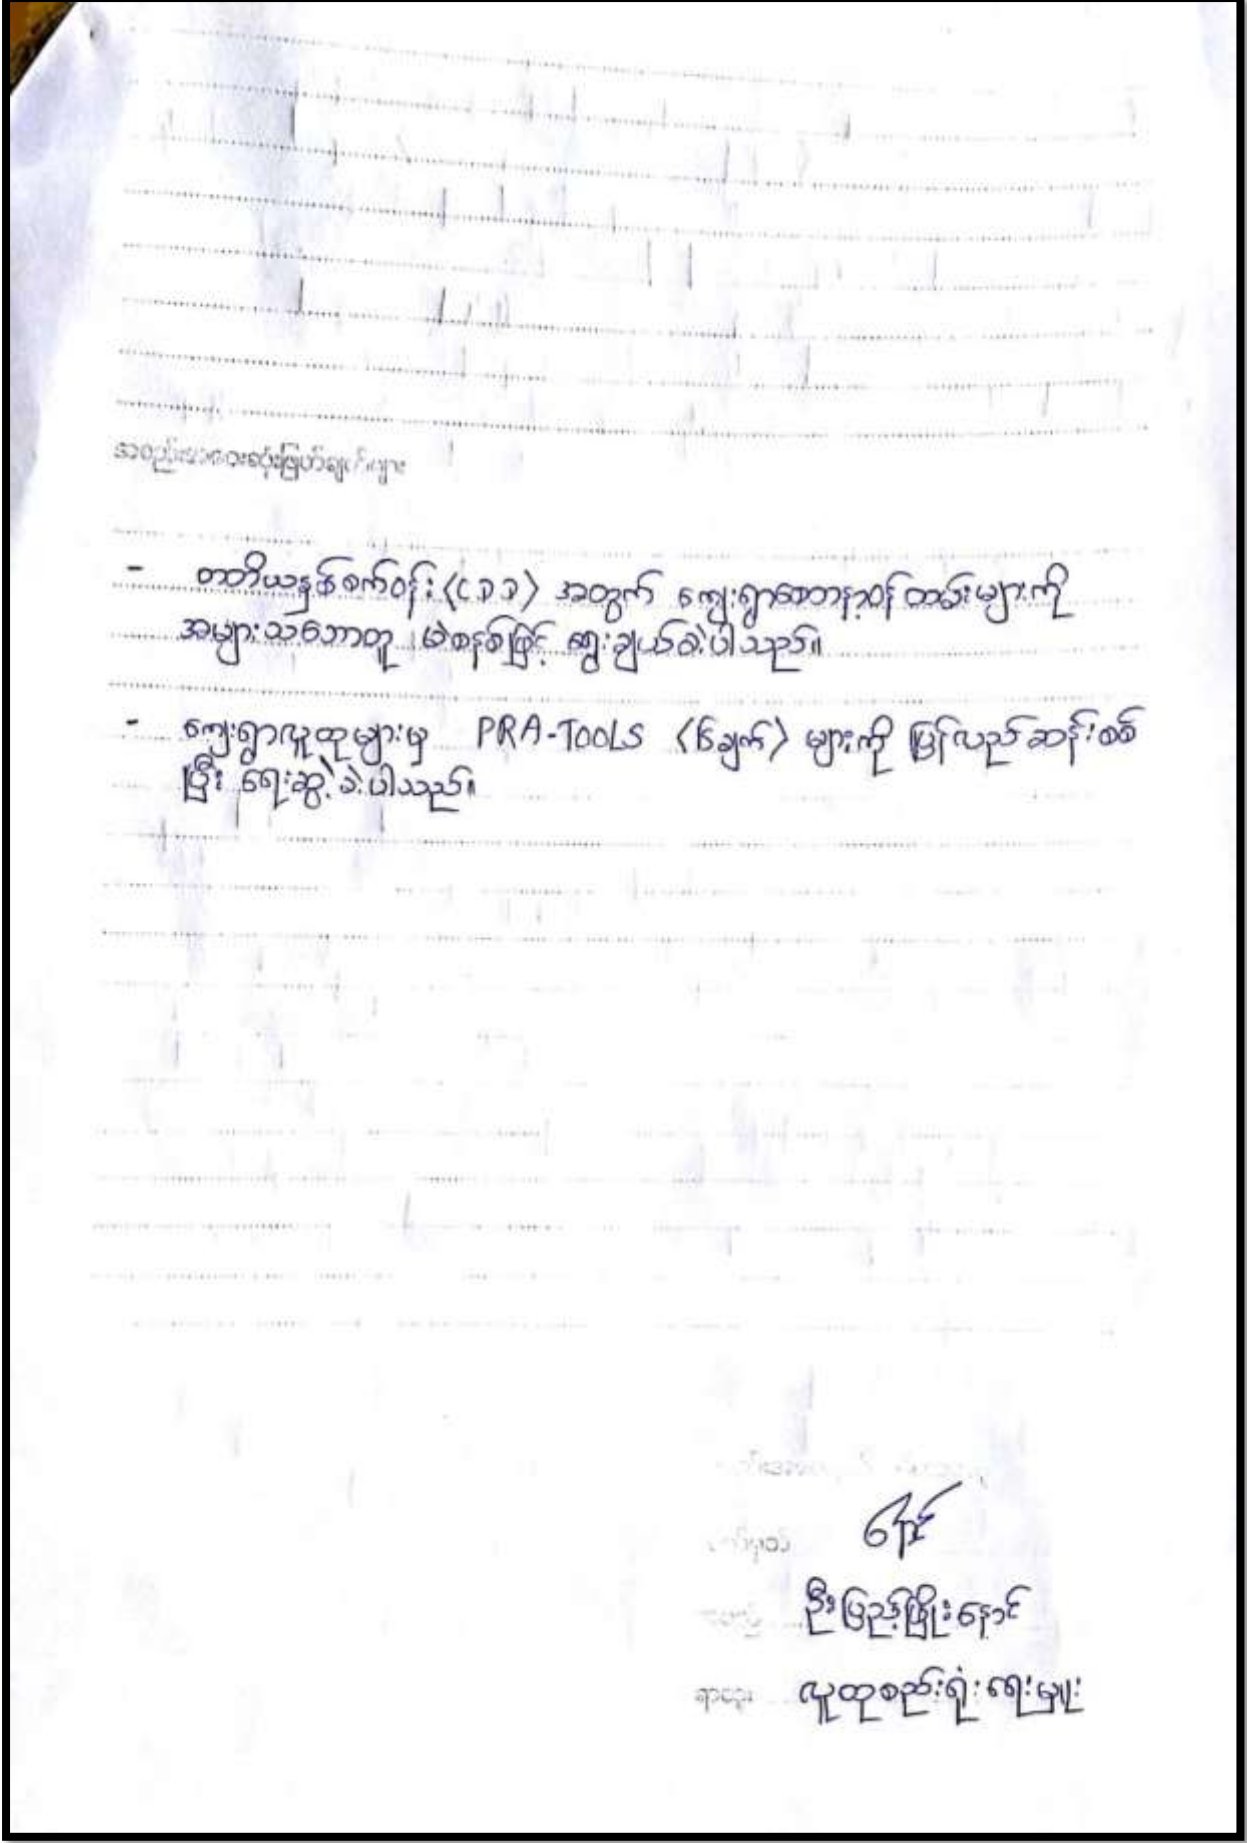 အစည်းအဝေးဆုံးဖြတ်ချက်များ
- တတိယနှစ်စက်ဝန်း (၎၁၁) အတွက် ကျေးရွာစေတနာ့ဝန်ထမ်းများကို
အများသဘောတူ မဲစနစ်ဖြင့် ရွေးချယ်ခဲ့ပါသည်။
- ကျေးရွာလူထုများမှ PRA-TOOLS (၆ချက်) များကို ပြန်လည်ဆန်းစစ်
ပြီး ရေးဆွဲခဲ့ပါသည်။
လက်မှတ်
အမည် ဦးပြည့်ဖြိုးနောင်
ရာထူး လူထုစည်းရုံးရေးမှူး